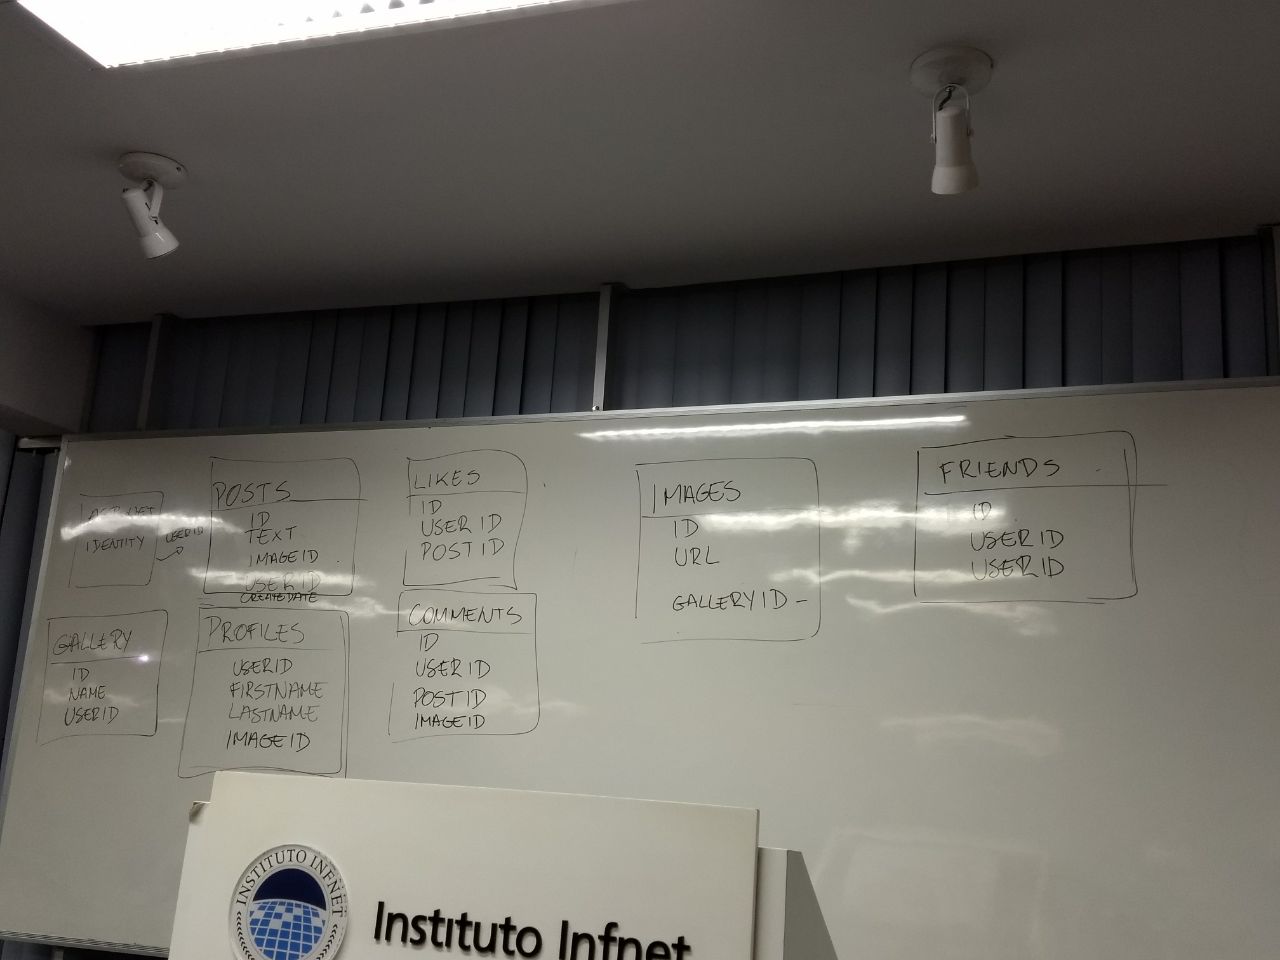 ASP.NET
IDENTITY
USERID
POSTS
ID
TEXT
IMAGEID
USERID
CREATEDATE
LIKES
ID
USERID
POSTID
IMAGES
ID
URL
GALLERYID
FRIENDS
ID
USERID
USERID
GALLERY
ID
NAME
USERID
PROFILES
USERID
FIRSTNAME
LASTNAME
IMAGEID
COMMENTS
ID
USERID
POSTID
IMAGEID
INSTITUTO INFNET
Instituto Infnet